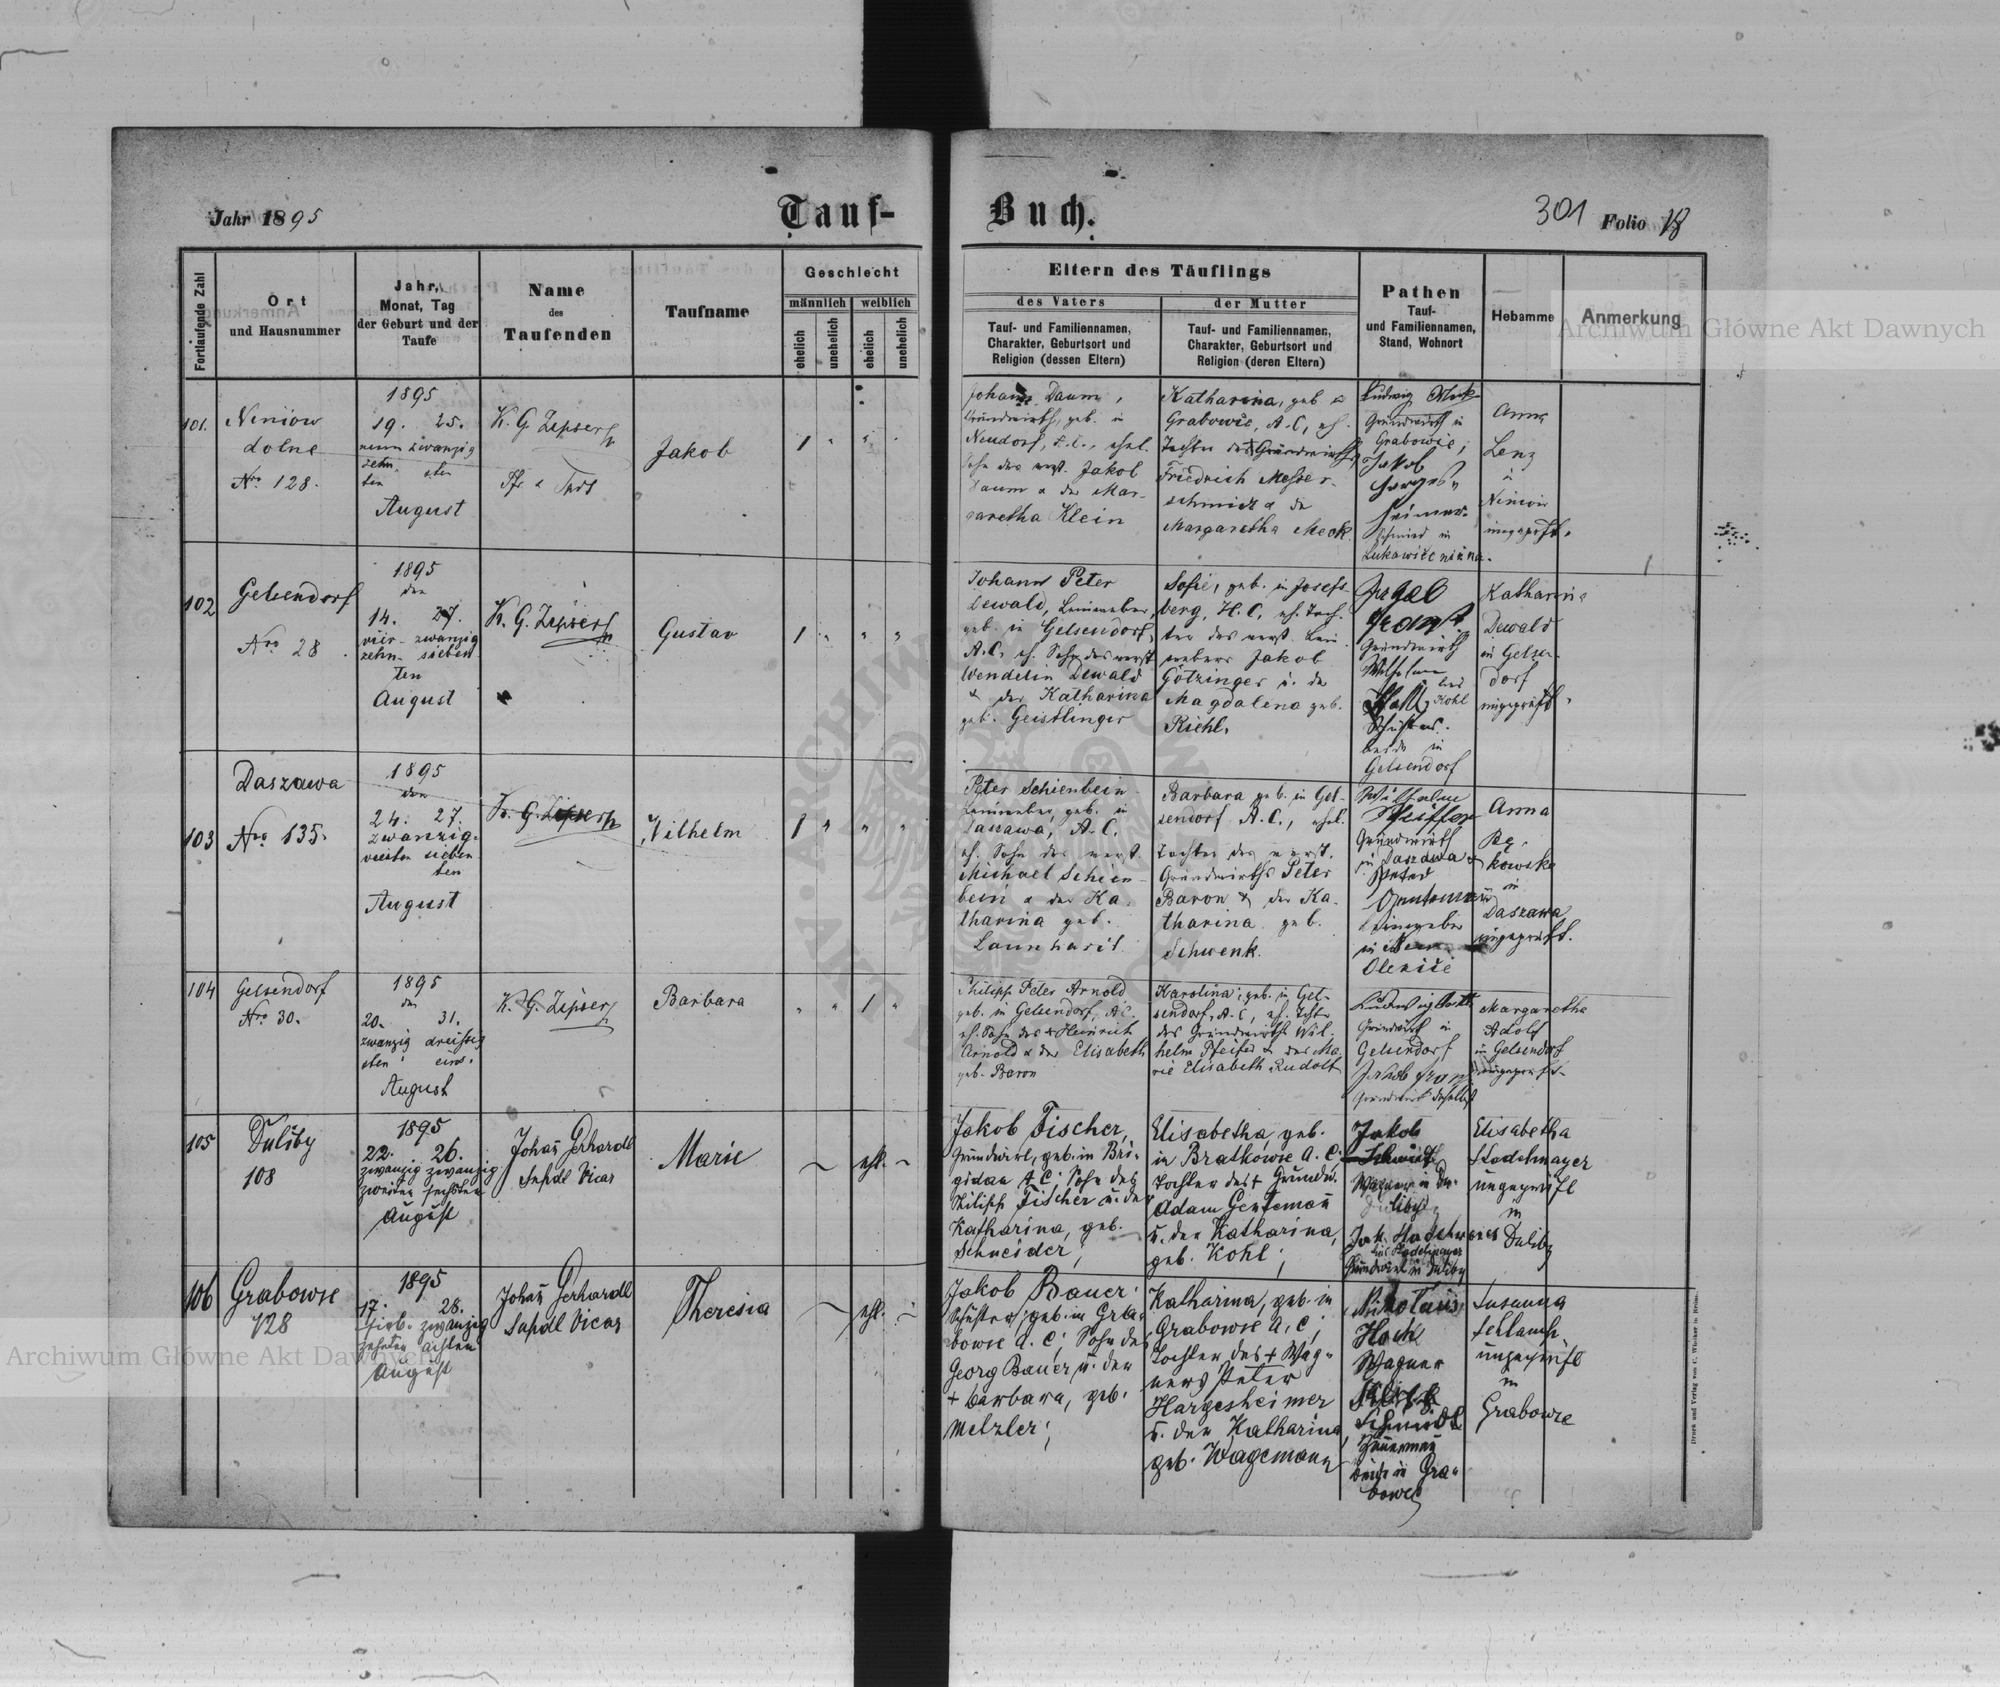 Jahr 1895
Tauf-
Buch.
301 Folio 18
Fortlaufende Zahl
Ort
und Hausnummer
Jahr,
Monat, Tag
der Geburt und der
Taufe
Name
des
Taufenden
Taufname
Geschlecht
männlich
weiblich
ehelich
unehelich
ehelich
unehelich
Eltern des Täuflings
des Vaters
Tauf- und Familiennamen,
Charakter, Geburtsort und
Religion (dessen Eltern)
der Mutter
Tauf- und Familiennamen,
Charakter, Geburtsort und
Religion (deren Eltern)
Pathen
Tauf-
und Familiennamen,
Stand, Wohnort
Hebamme
Anmerkung
101.
Neniow
dolne
Nro 128.
1895
19. 25.
neun zwanzig
zehn
ten sten
August
K. G. Zipser
Jakob
1
Johann Daum,
Grundwirth, geb. in
Neudorf, A. C., ehel.
Sohn des verst. Jakob
Daum & der Mar-
garetha Klein
Katharina, geb in
Grabowie, A. C, eh.
Tochter des Grundwirths
Friedrich Messer-
schmidt & der
Margaretha Meck.
Ludwig Meck
Grundwirth in
Grabowie,
Jakob
heimer
Schmied in
Lukawice niżna.
Anna
Lenz
in
Niniow
ungeprüft.
102
Gelsendorf
Nro 28.
1895
den
14. 27.
vier- zwanzig
zehn- sieben
ten
August
K. G. Zipser
Gustav
1
Johann Peter
Dewald, Leinweber,
geb. in Gelsendorf,
A. C, eh. Sohn des verst
Wendelin Dewald
& der Katharina
geb. Geistlinger
Sofie, geb. in Josefs-
berg, H. C, eh. Toch-
ter des verst. Lein
webers Jakob
Götzinger u. der
Magdalena geb.
Kiehl.
Grundwirth
Wilhelm
Kohl
Schuster.
beide in
Gelsendorf
Katharina
Dewald
in Gelsen-
dorf
ungeprüft.
103
Daszawa
Nro 135.
1895
den
24. 27.
zwanzig-
vierten sieben
ten
August
K. G. Zipser
Wilhelm
1
Peter Schienbein
Leinweber, geb. in
Daszawa, A. C.
eh. Sohn des verst.
Michael Schien-
bein & der Ka-
tharina geb.
Launhardt
Barbara geb. in Gel-
sendorf A. C., ehel.
Tochter des verst.
Grundwirths Peter
Baron & der Ka-
tharina geb.
Schwenk.
Wilhelm
Pfeiffer
Grundwirth
in Daszawa &
Peter
in Neu
Olexice
Anna
kowska
in
Daszawa
ungeprüft.
104
Gelsendorf
Nro 30.
1895
den
20. 31.
zwanzig dreissig
sten eins.
August
K. G. Zipser
Barbara
1
Philipp Peter Arnold
geb. in Gelsendorf, A. C.
eh. Sohn des + Heinrich
Arnold & der Elisabeth
geb. Baron
Karolina, geb. in Gel-
sendorf, A. C, eh. Tochter
des Grundwirths Wil-
helm Pfeifer & der Ma
rie Elisabeth Rudolf
Grundwirth in
Gelsendorf
Jakob
Grundwirth daselbst
Margaretha
Adolf
in Gelsendorf
ungeprüft.
105
Duliby
108
1895
22. 26.
zwanzig zwanzig
zweiten sechsten
August
Johañ Gerhardt
Supdl Vicar
Marie
ehl.
Jakob Fischer,
Grundwirt, geb. in Bri-
gidau A. C; Sohn des
Philipp Fischer u. der
Katharina, geb.
Schneider;
Elisabetha, geb.
in Bratkowce A. C;
Tochter des + Grundw.
Adam Gentemañ
u. der Katharina,
geb. Kohl;
Jakob
Schmidt
Wagner in Du-
liby
Jak. Stadelmaier
Stadelmayer
Grundwirt in Duliby
Elisabetha
Stadelmayer
ungeprüft
in
Duliby
106
Grabowce
128
1895
17. 28.
sieb- zwanzig
zehnten achten
August
Johañ Gerhardt
Supdl Vicar
Theresia
ehl.
Jakob Bauer;
Schuster; geb. in Gra-
bowce A. C; Sohn des
Georg Bauer u. der
+ Barbara, geb.
Metzler;
Katharina, geb. in
Grabowce A. C;
Tochter des + Wag-
ners Peter
Hargesheimer
u. der Katharina,
geb. Wagemann
Nikolaus
Hack
Wagner
Schmidt
Zimermañ
beide in Gra-
bowce
Susanna
Schlamp
ungeprüft
in
Grabowce
Druck und Verlag von C. Winiker in Brünn.
Archiwum Główne Akt Dawnych
Archiwum Główne Akt Dawnych